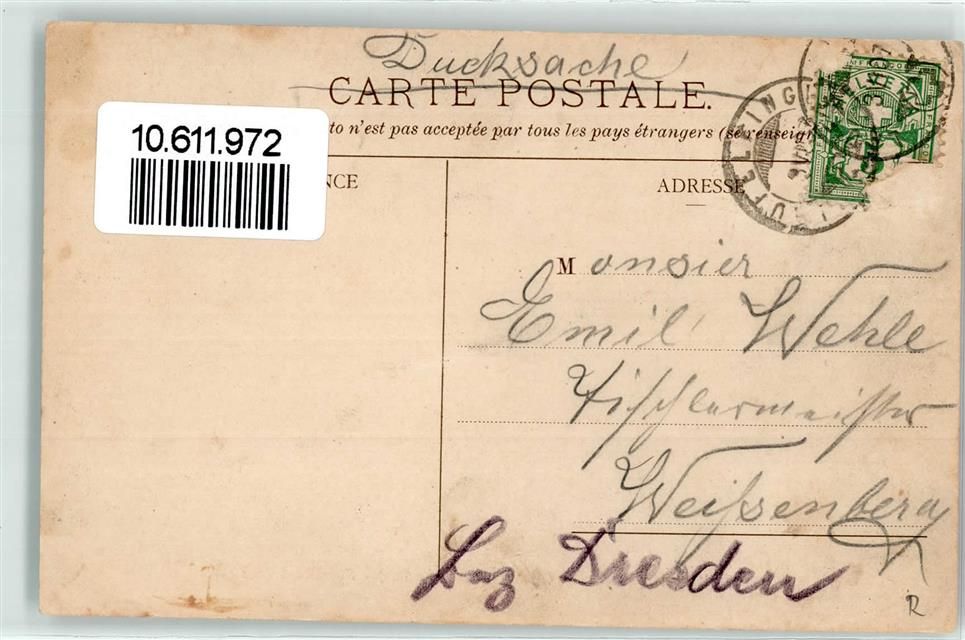 Ducksache
CARTE POSTALE.
to n'est pas acceptée par tous les pays étrangers (se renseign
10.611.972
NCE
ADRESSE
Monsier
Emil Wehle
Tischlermeister
Weißenberg
Bez Dresden
R